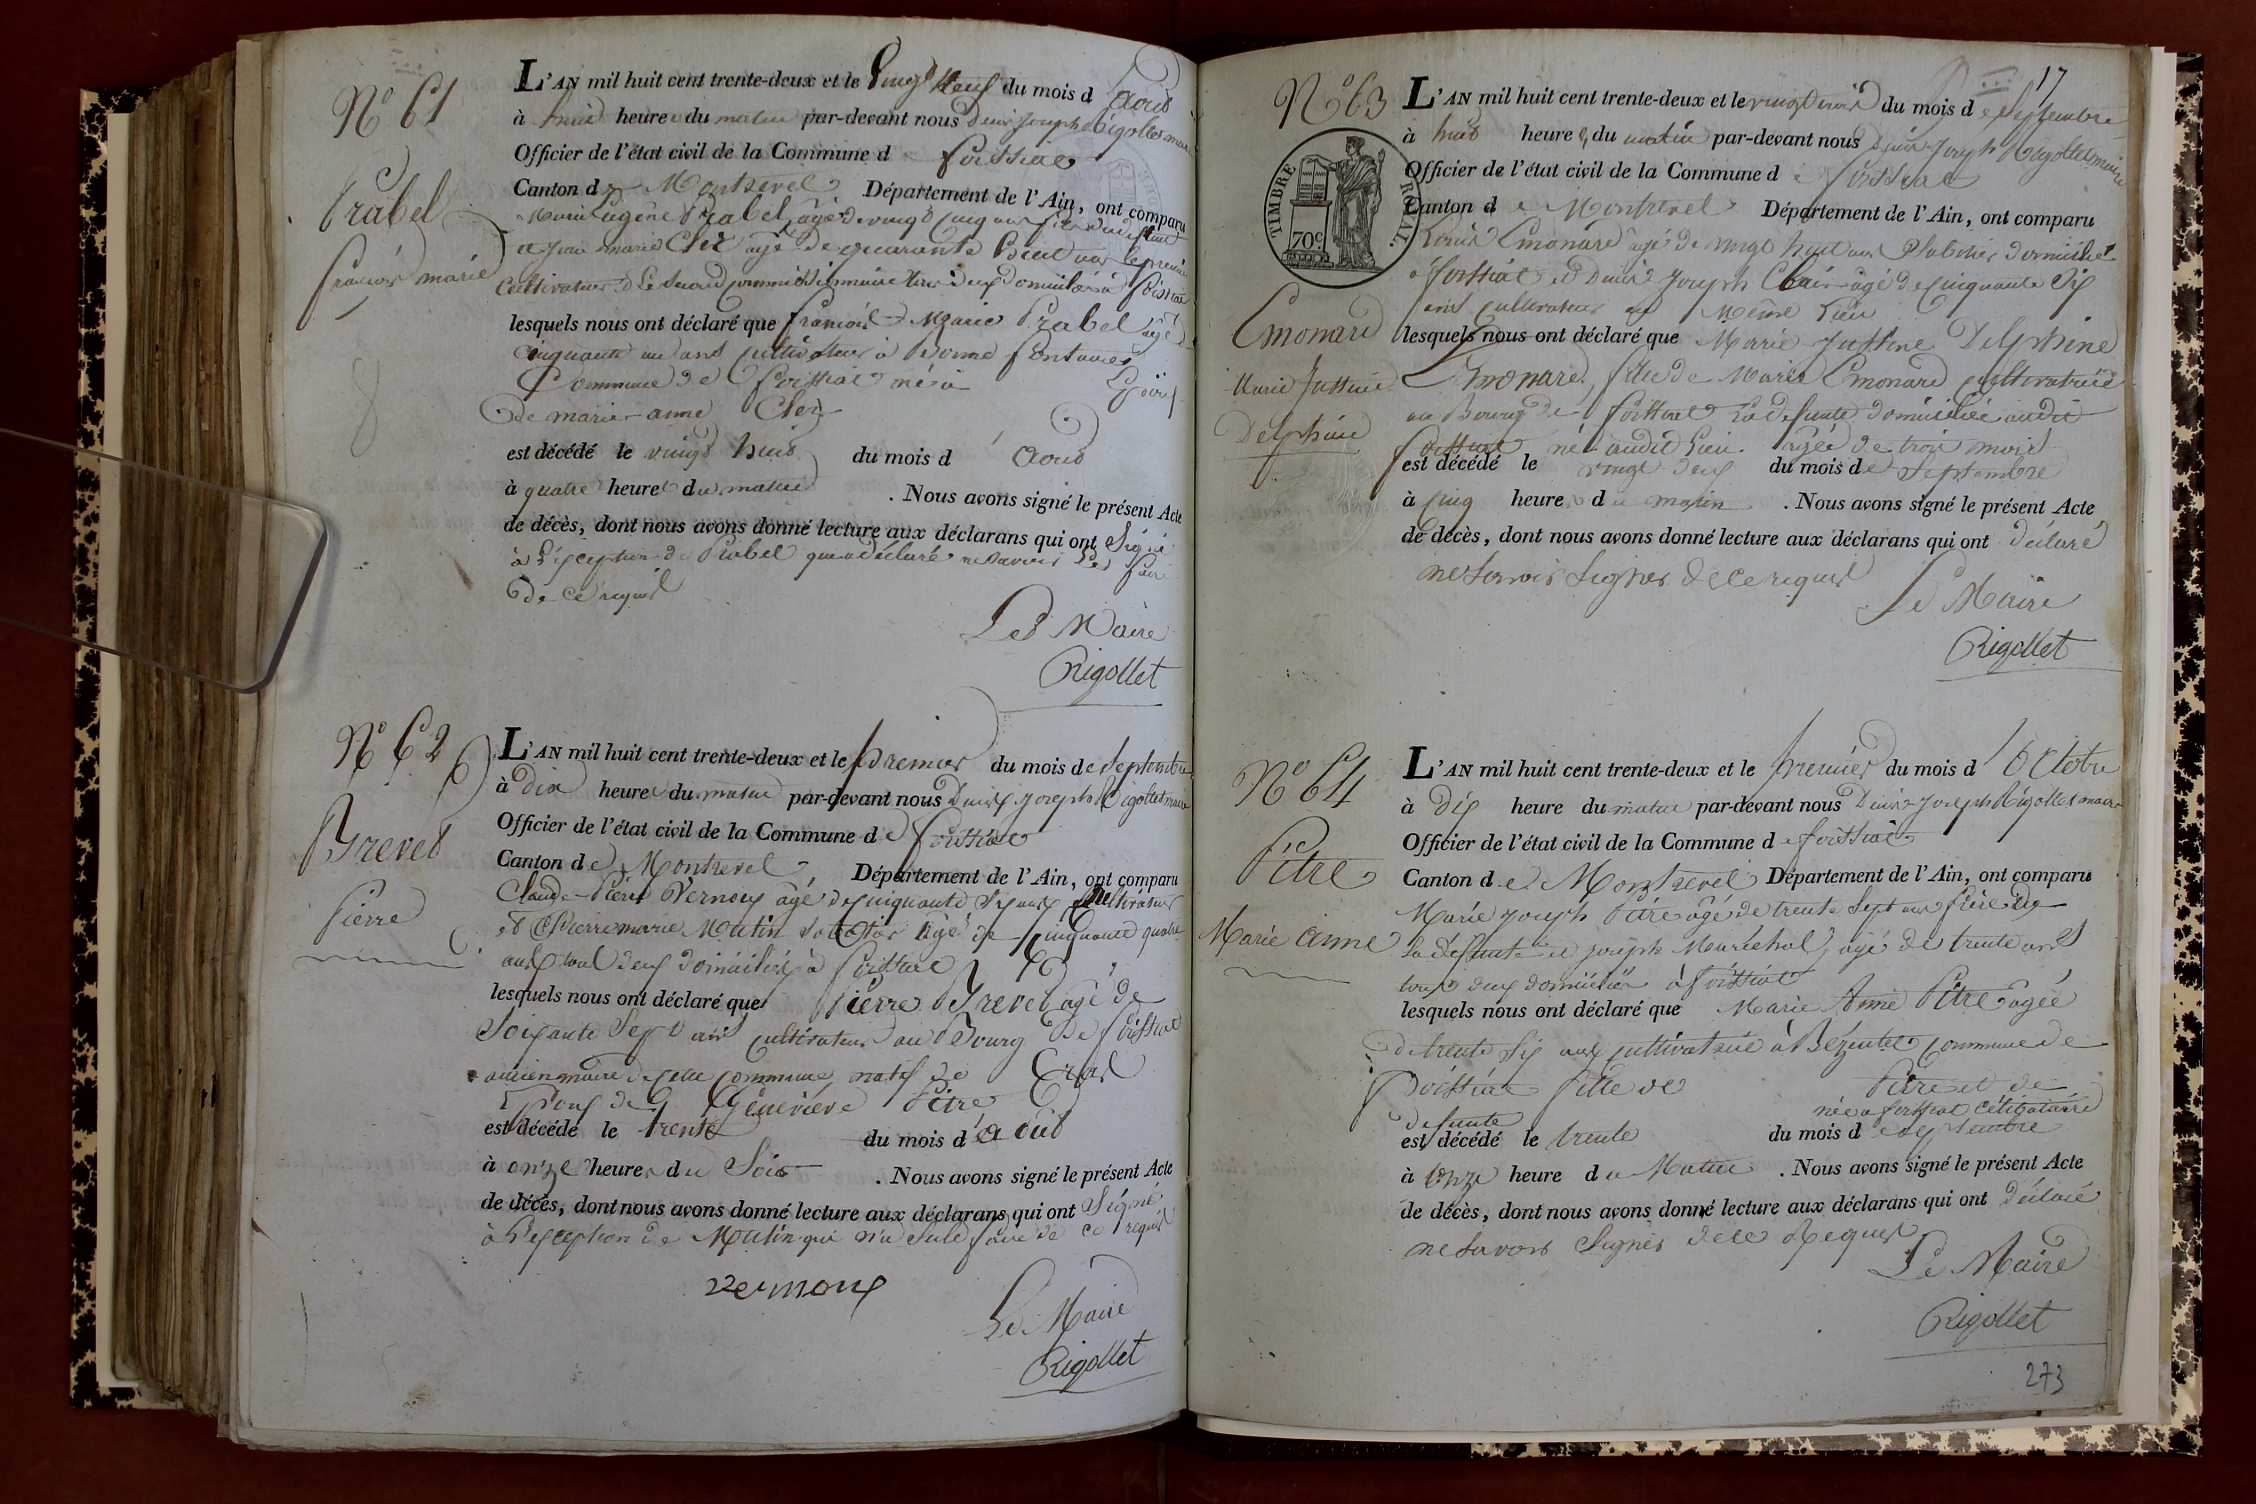 N° 61
Prabel
francois marie
L'AN mil huit cent trente-deux et le Vingt Neuf du mois d'aout
à huit heure du matin par-devant nous Denis Joseph Rigollet maire
Officier de l'état civil de la Commune d foissiat
Canton de Montrevel Département de l'Ain, ont comparu
Marie Eugène Prabel, agé de vingt cinq ans fils du defunt
et Jean marie Clerc agé de quarante huit ans le premier
cultivateur le second commissionnaire tous deux domiciliés à foissiat
lesquels nous ont déclaré que francois Marie Prabel agé
cinquante un ans cultivateur à Bonne fontaine
Commune de foissiat né à Epoux
de marie anne Clerc
est décédé le vingt huit du mois d'aout
à quatre heure du matin . Nous avons signé le présent Acte
de décès, dont nous avons donné lecture aux déclarans qui ont Signé
à l'exception de Prabel qui a déclaré ne savoir Le faire
de ce requis
Le Maire
Rigollet
N° 62
Brevet
Pierre
L'AN mil huit cent trente-deux et le premier du mois de Septembre
à dix heure du matin par-devant nous Denis Joseph Rigollet maire
Officier de l'état civil de la Commune de foissiat
Canton de Montrevel, Département de l'Ain, ont comparu
Claude Pierre Vernoux agé de cinquante six ans cultivateur
et Pierre marie Mutin agé de cinquante quatre
ans tous deux domiciliés à foissiat
lesquels nous ont déclaré que Pierre Brevet agé de
Soixante Sept ans cultivateur au Bourg de foissiat
ancien maire de cette commune natif de Cras
Epoux de Geneviève Pitre
est décédé le trente du mois d'aout
à onze heures du Soir . Nous avons signé le présent Acte
de décès, dont nous avons donné lecture aux déclarans qui ont Signé
à l'exception de Mutin qui n'a Sule faire de ce requis
vernoux
Le Maire
Rigollet
17
N° 63
TIMBRE ROYAL.
70c
Emonard
Marie Justine
Delphine
L'AN mil huit cent trente-deux et le vingt trois du mois de Septembre
à huit heures du matin par-devant nous Denis Joseph Rigollet maire
Officier de l'état civil de la Commune de foissiat
Canton de Montrevel Département de l'Ain, ont comparu
Louis Emonard agé de vingt huit ans Platrier domicilié
à foissiat et Denis Joseph agé de cinquante six
ans cultivateur au Même Lieu
lesquels nous ont déclaré que Marie Justine Delphine
Emonard fille de Marie Emonard cultivatrice
au Bourg de foissiat La defunte domiciliée audit
foissiat né audit Lieu agée de trois mois
est décédé le vingt deux du mois de Septembre
à cinq heures du matin . Nous avons signé le présent Acte
de décès, dont nous avons donné lecture aux déclarans qui ont déclaré
ne Savoir Signer de ce requis
Le Maire
Rigollet
N° 64
Pitre
Marie anne
L'AN mil huit cent trente-deux et le premier du mois d'Octobre
à dix heure du matin par-devant nous Denis Joseph Rigollet maire
Officier de l'état civil de la Commune de foissiat
Canton de Montrevel Département de l'Ain, ont comparu
Marie joseph Pitre agé de trente Sept ans frère de
la défunte et joseph Maréchal, agé de trente ans
tous deux domiciliés à foissiat
lesquels nous ont déclaré que Marie Anne Pitre agée
de trente Six ans cultivatrice à Bezentet commune de
foissiat fille de Pitre et de
née a foissiat célibataire
defunte
est décédé le trente du mois de Septembre
à onze heure du Matin . Nous avons signé le présent Acte
de décès, dont nous avons donné lecture aux déclarans qui ont déclaré
ne Savoir Signer de ce Requis
Le Maire
Rigollet
273